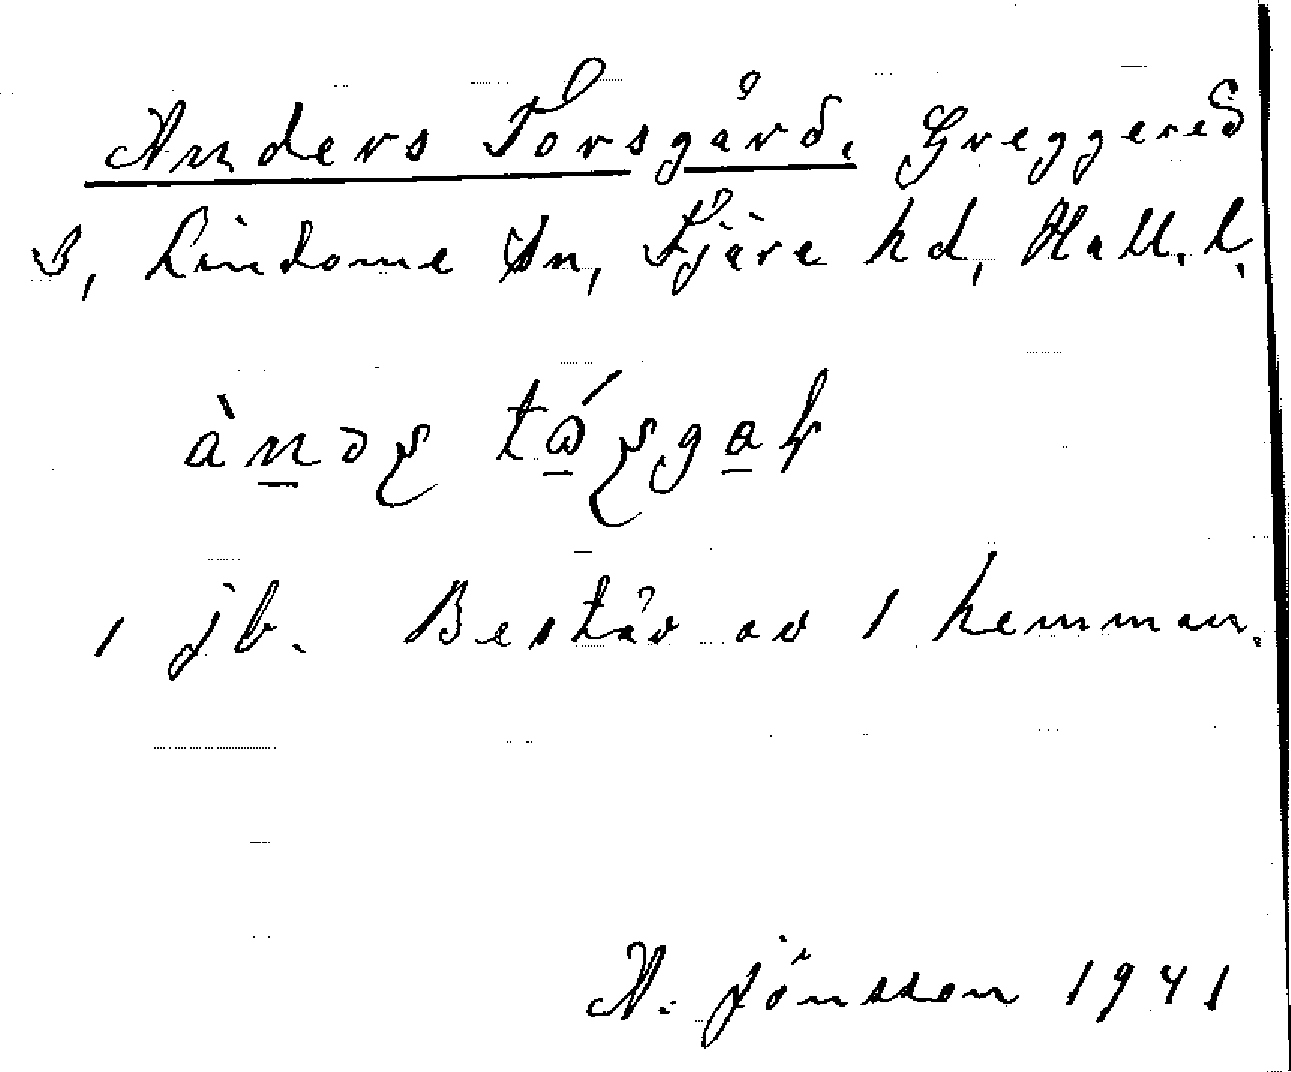 Anders Torsgård, Greggered
3, Lindome sn, Fjäre hd, Hall. l.
1 jb. Består av 1 hemman.
A. Jönsson 1941